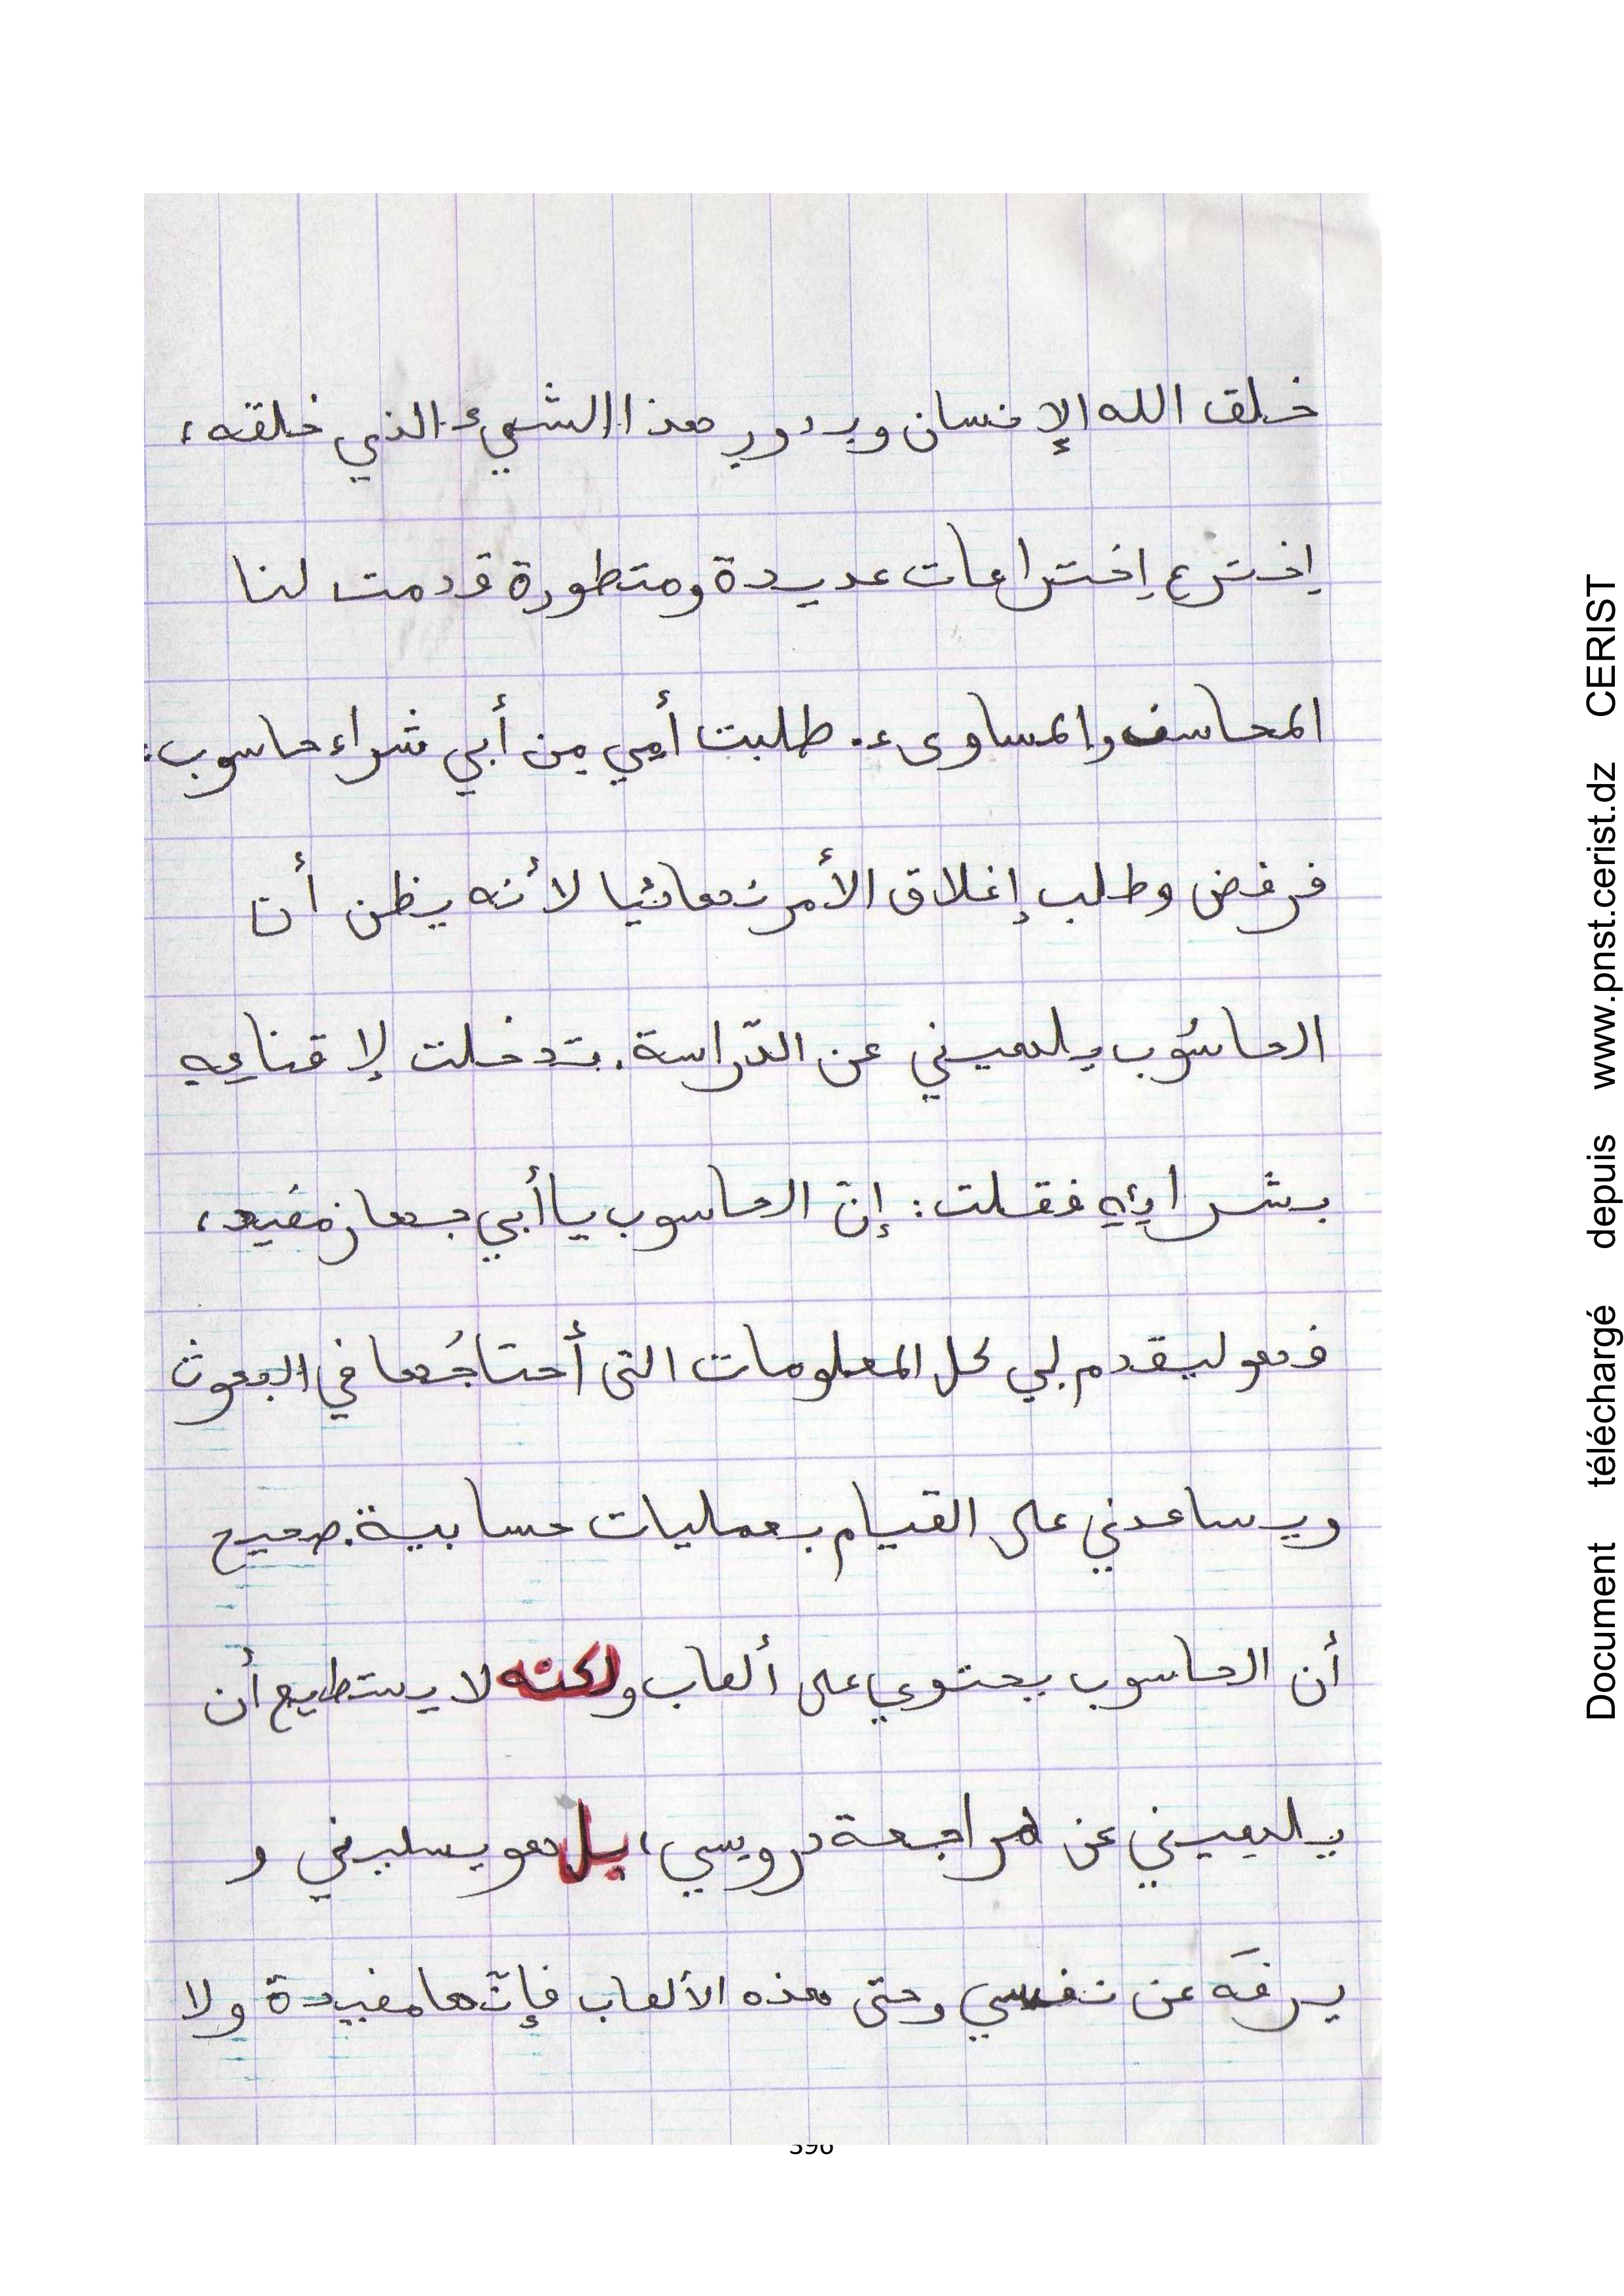 خلق الله الإنسان وبدور هذا الشيء الذي خلقه،
إخترع إختراعات عديدة ومتطورة قدمت لنا
المحاسن والمساوىء. طلبت أمي من أبي شراء حاسوب:
فرفض وطلب إغلاق الأمر نهائيا لأنه يظن أن
الحاسُوب يلهيني عن الدّراسة. تدخلت لإقناعِهِ
بشرائِهِ فقلت: إنّ الحاسوب يا أبي جهاز مفيد،
فهو ليقدم لي كل المعلومات التى أحتاجُها في البحوث
ويساعدني على القيام بعمليات حسابية. صحيح
أن الحاسوب يحتوي على ألعاب ولكنه لا يستطيع أن
يلهيني عن مراجعة درويسي، بل هو يسليني و
يرفَه عن نفسي وحتى هذه الألعاب فإنّها مفيدة ولا
396
Document téléchargé depuis www.pnst.cerist.dz CERIST